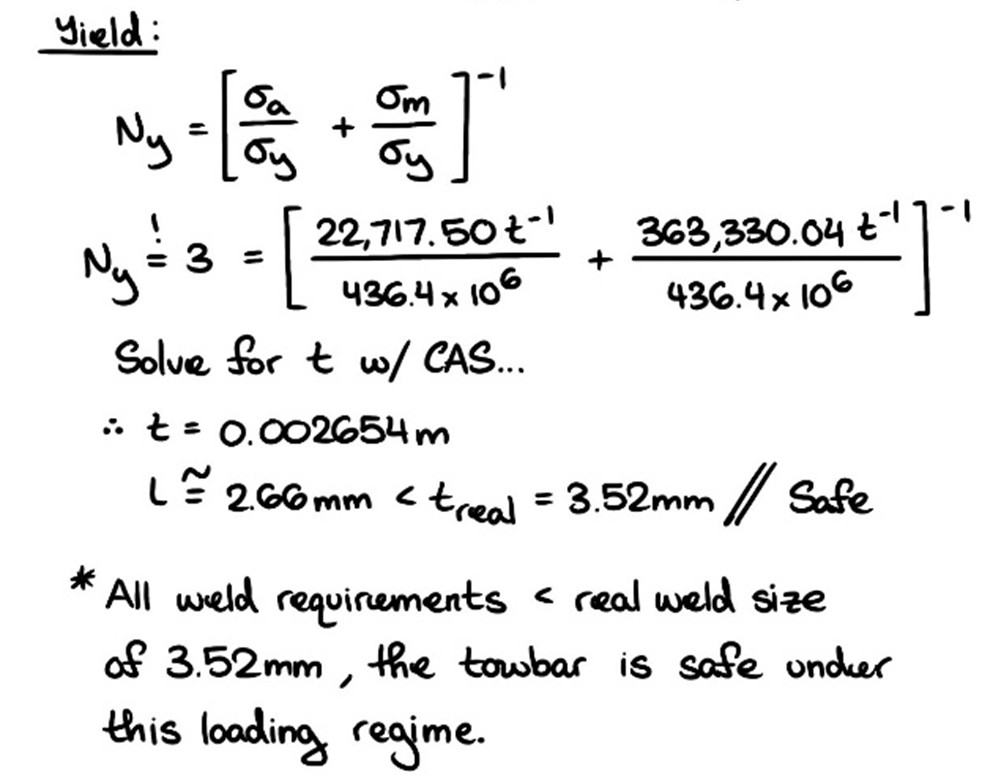 Yield:
Ny = [σa/σy + σm/σy]^-1
Ny =! 3 = [22,717.50 t^-1 / 436.4 x 10^6 + 363,330.04 t^-1 / 436.4 x 10^6]^-1
Solve for t w/ CAS...
∴ t = 0.002654m
L ≅ 2.66mm < treal = 3.52mm // Safe
* All weld requirements < real weld size
of 3.52mm, the towbar is safe under
this loading regime.